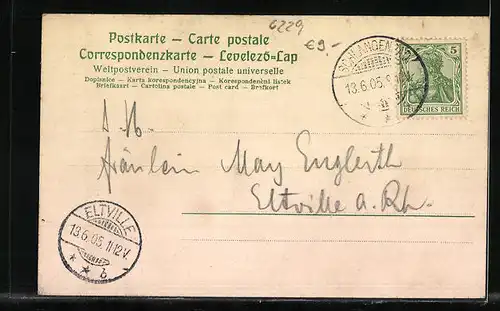 6229
€9.-
Postkarte – Carte postale
Correspondenzkarte – Levelező-Lap
Weltpostverein – Union postale universelle
Dopisnice – Karta korespondencyjna – Korespondenční lístek
Briefkaart – Cartolina postale – Post card – Brefkort
SCHLANGENBAD
13.6.05.
5
DEUTSCHES REICH
Fräulein May Englerth
Eltville a. Rh.
ELTVILLE
13.6.05. 11-12V.
* * b